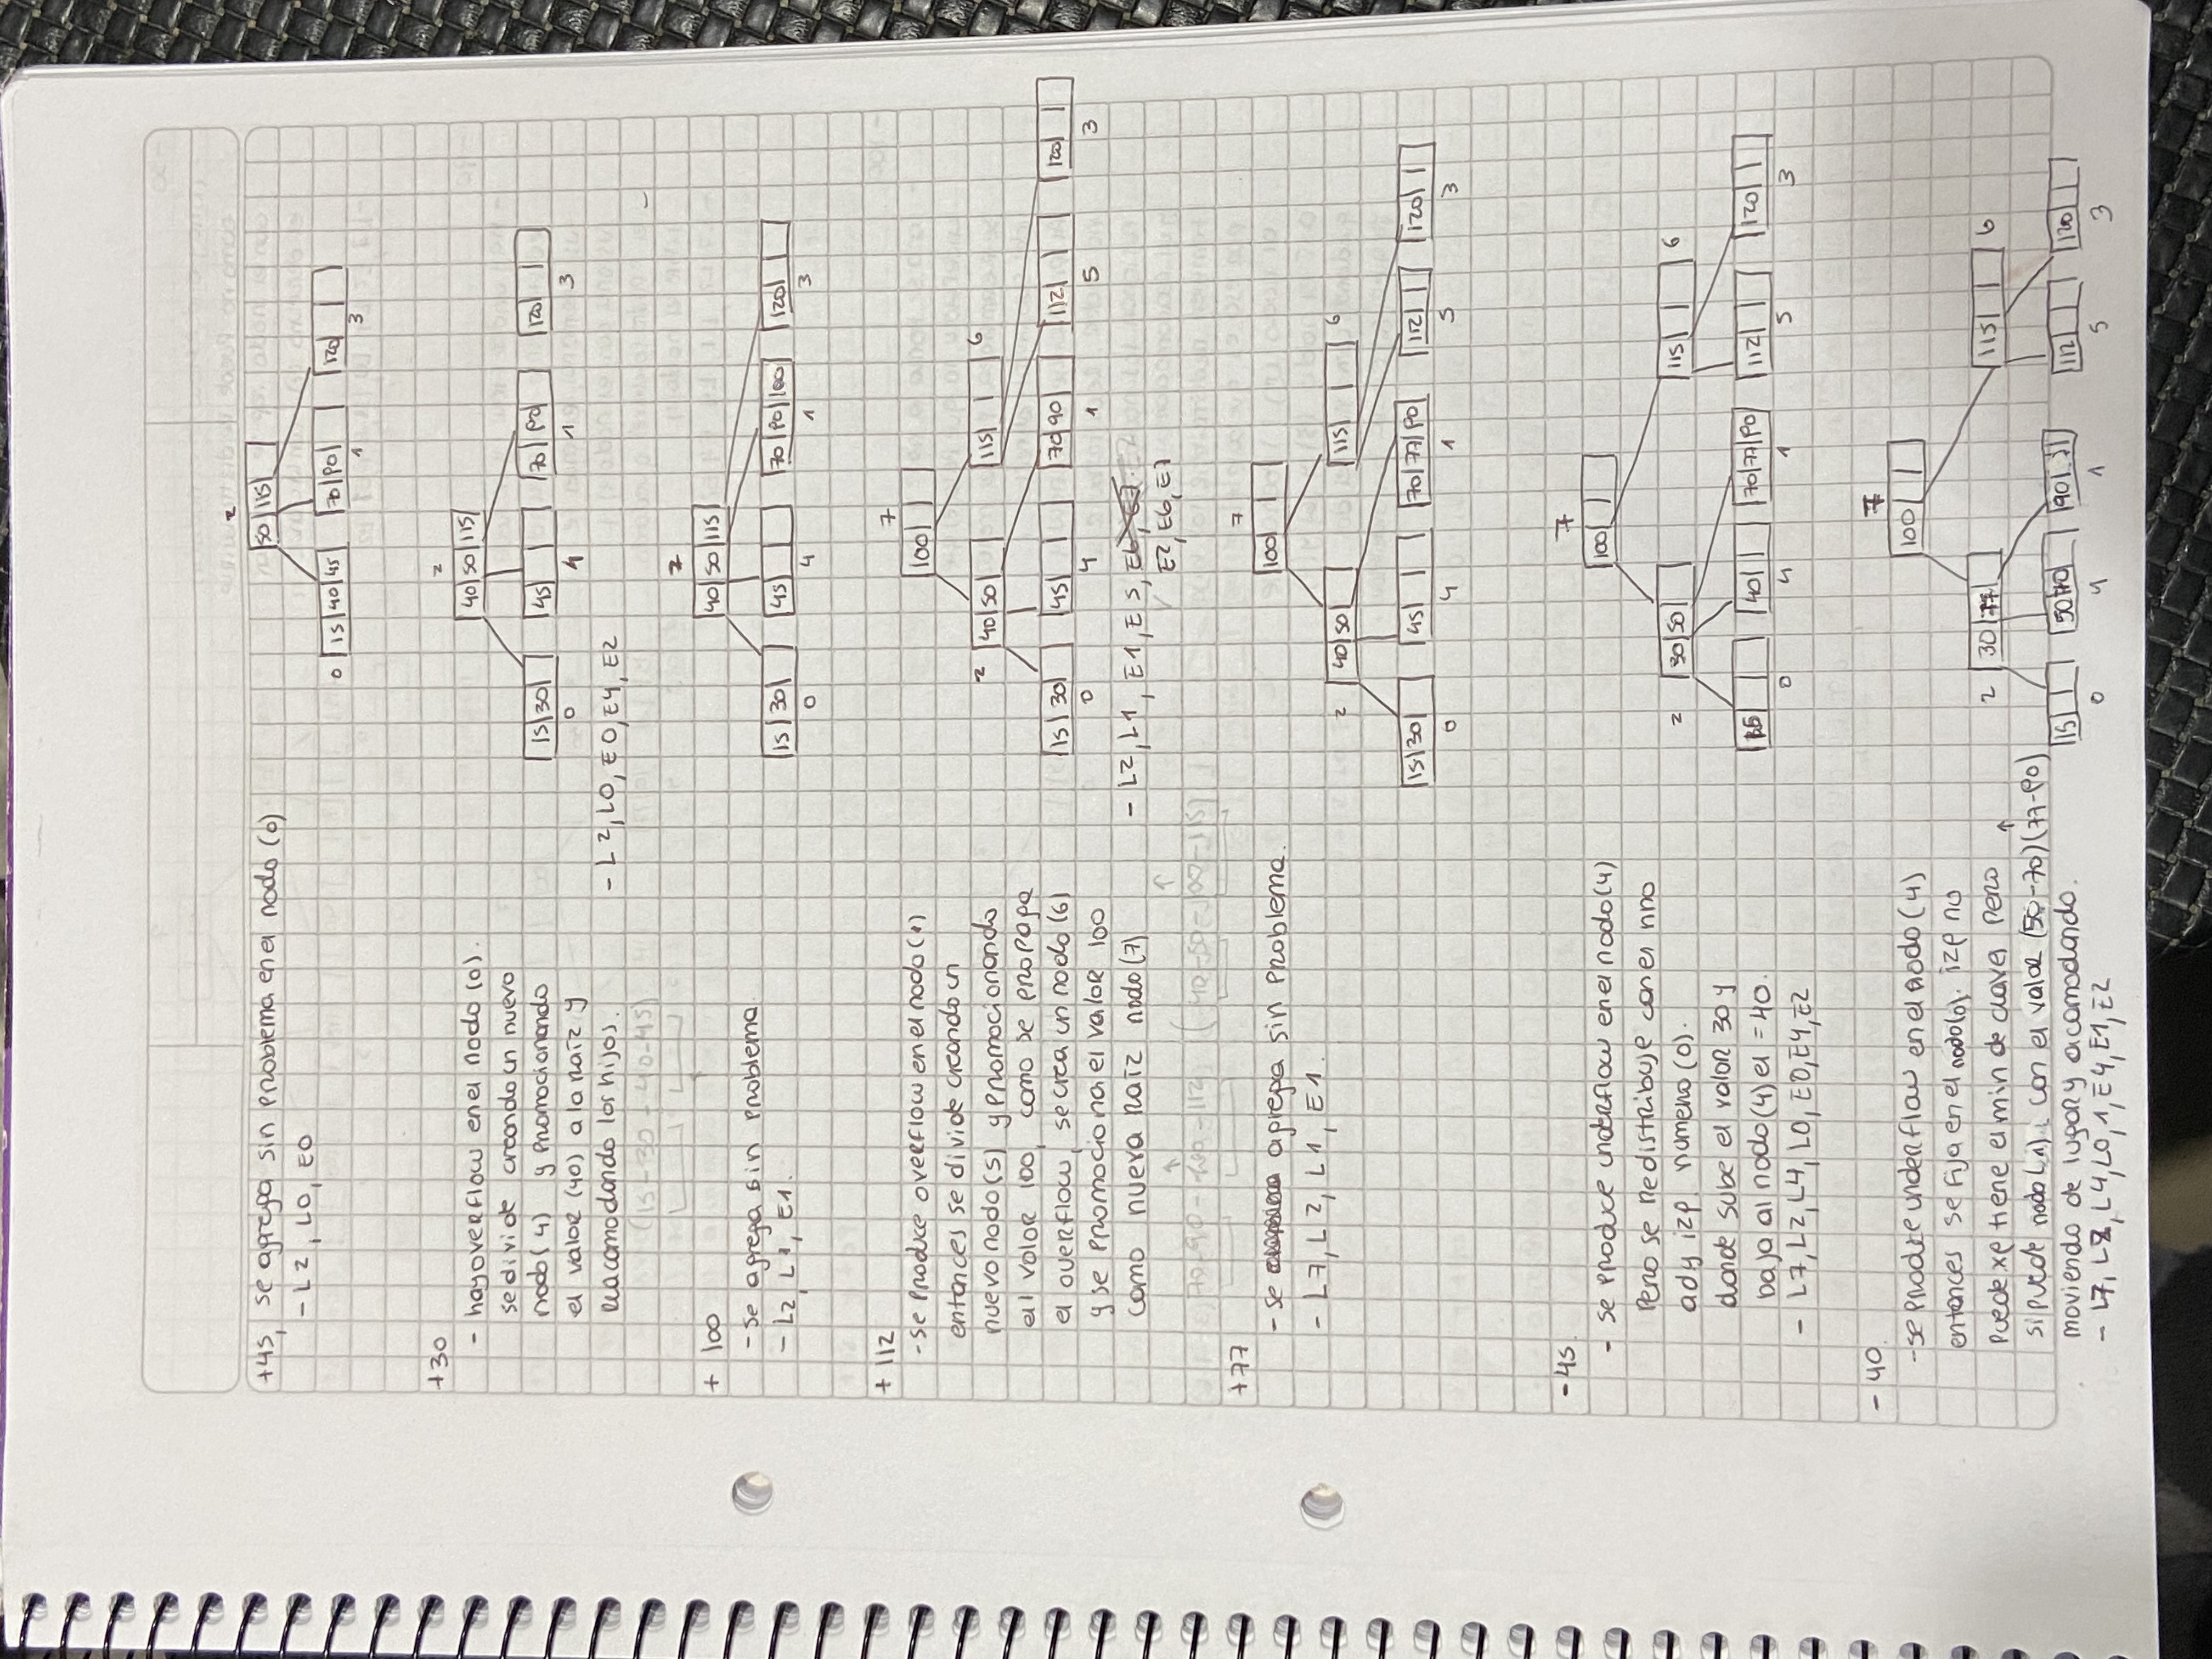 +45, se agrega sin problema en el nodo (0)
- L2, L0, E0
2
50 115
0 15 40 45 70 90 120
1 3
+30
- hay overflow en el nodo (0).
se divide creando un nuevo
nodo (4) y promocionando
el valor (40) a la raiz y
reacomodando los hijos.
- L2, L0, E0, E4, E2
2
40 50 115
15 30 45 70 90 120
0 4 1 3
+ 100
- se agrega sin problema
- L2, L1, E1.
2
40 50 115
15 30 45 70 90 100 120
0 4 1 3
+ 112
- se produce overflow en el nodo (1)
entonces se divide creando un
nuevo nodo (5) y promocionando
el valor 100, como se propaga
el overflow, se crea un nodo (6)
y se promociona el valor 100
como nueva raiz nodo (7)
- L2, L1, E1, E5, E6, E7.
E2, E6, E7
7
100
2 40 50 115 6
15 30 45 70 90 112 120
0 4 1 5 3
+77
- se agrega sin problema.
- L7, L2, L1, E1.
7
100
2 40 50 115 6
15 30 45 70 77 90 112 120
0 4 1 5 3
- 45.
- se produce underflow en el nodo (4)
pero se redistribuye con el nno
ady izq. numero (0).
donde sube el valor 30 y
baja al nodo (4) el = 40.
- L7, L2, L4, L0, E0, E4, E2
7
100
2 30 50 115 6
15 40 70 77 90 112 120
0 4 1 5 3
- 40.
- se produce underflow en el nodo (4)
entonces se fija en el nodo (0). izq no
puede xq tiene el min de claves pero
si puede nodo (1). con el valor (50-70)(77-90)
moviendo de lugar y acomodando.
- L7, L2, L4, L0, 1, E4, E1, E2
7
100
2 30 77 115 6
15 50 70 90 112 120
0 4 1 5 3